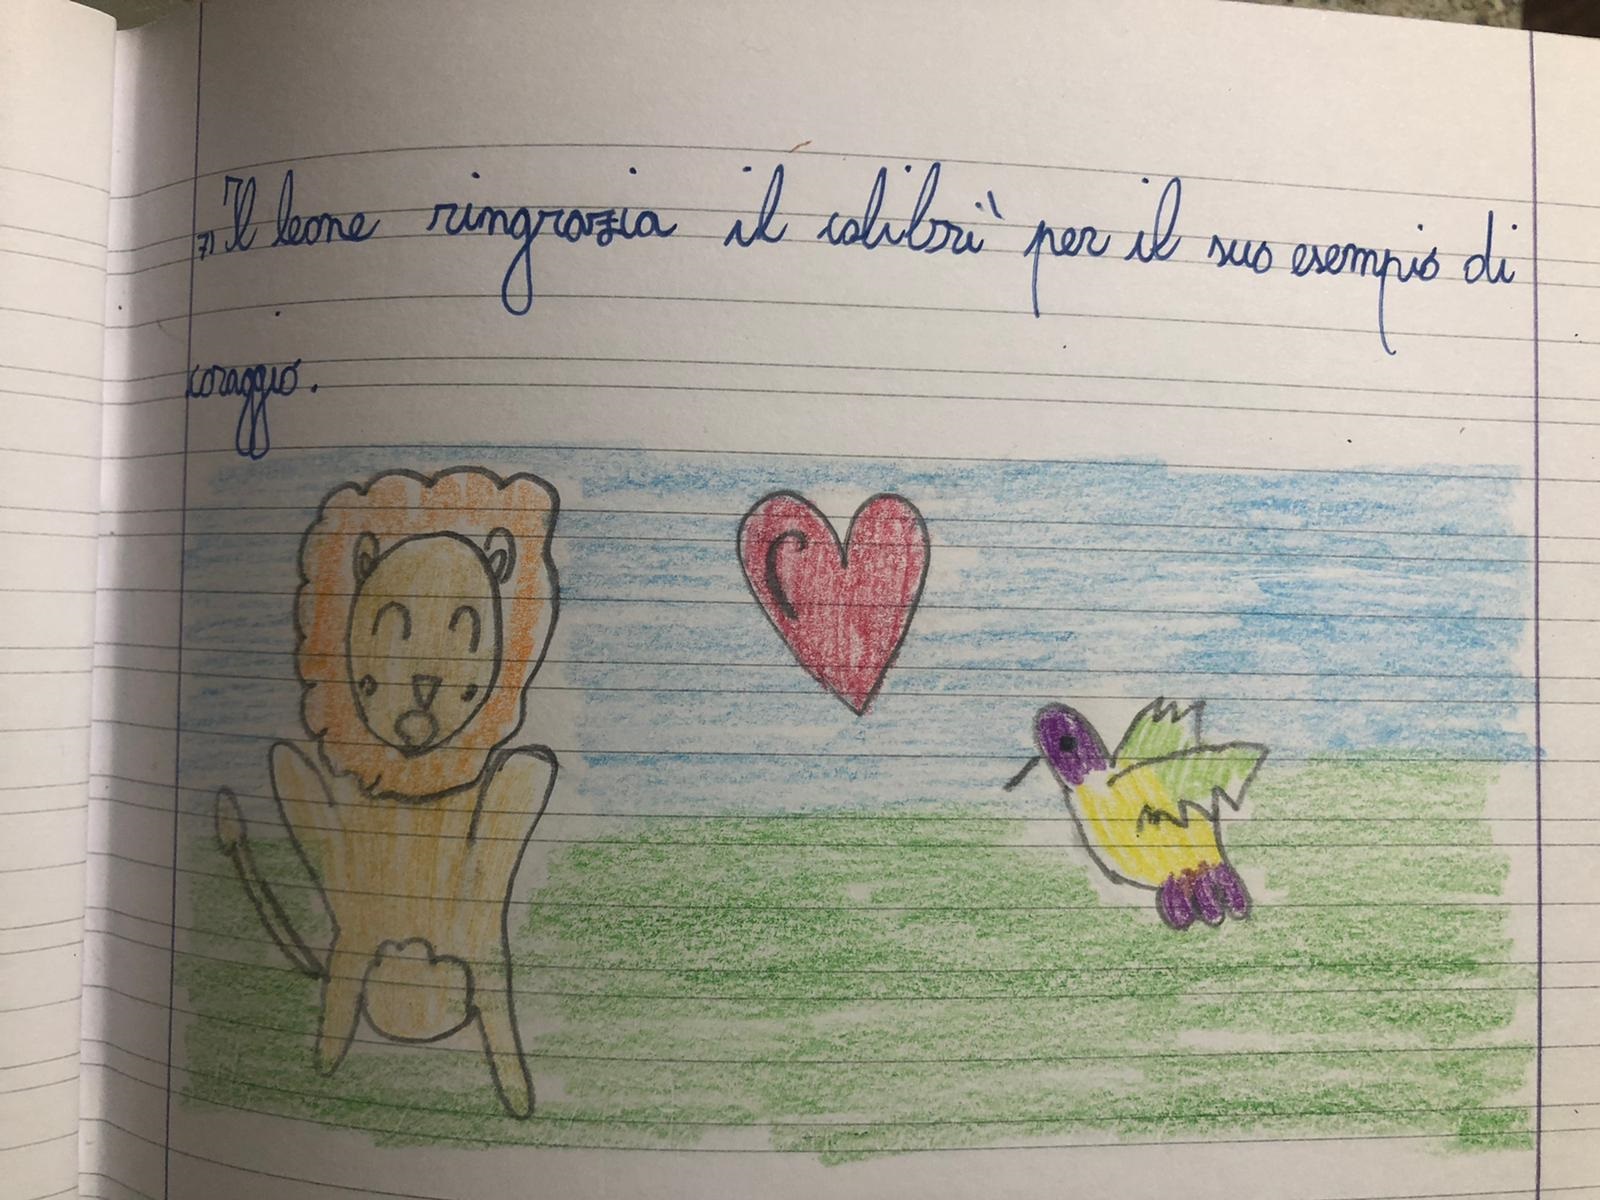 7) Il leone ringrazia il colibrì per il suo esempio di
coraggio.